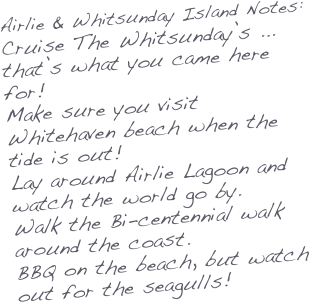 Airlie & Whitsunday Island Notes:
Cruise The Whitsunday`s ...
that`s what you came here
for!
Make sure you visit
Whitehaven beach when the
tide is out!
Lay around Airlie Lagoon and
watch the world go by.
Walk the Bi-centennial walk
around the coast.
BBQ on the beach, but watch
out for the seagulls!